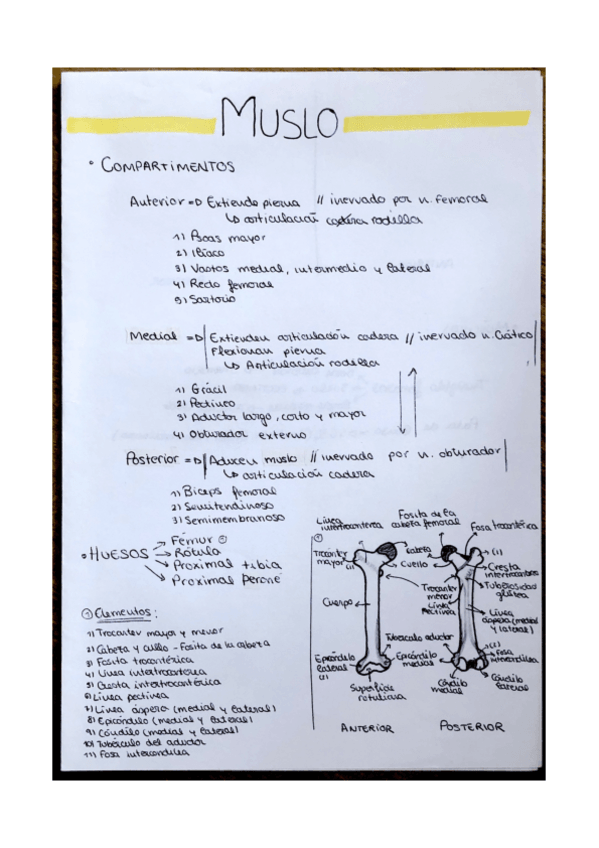 MUSLO
• COMPARTIMENTOS
Anterior => Extiende pierna // inervado por n. femoral
↳ articulación cadera rodilla
1) Psoas mayor
2) Ilíaco
3) Vastos medial, intermedio y lateral
4) Recto femoral
5) Sartorio
Medial => Extienden articulación cadera // inervado n. Ciático
Flexionan pierna
↳ Articulación rodilla
1) Grácil
2) Pectíneo
3) Aductor largo, corto y mayor
4) Obturador externo
Posterior => Aducen muslo // inervado por n. obturador
↳ articulación cadera
1) Bíceps femoral
2) Semitendinoso
3) Semimembranoso
• HUESOS → Fémur ①
→ Rótula
→ Proximal tibia
→ Proximal peroné
① Elementos:
1) Trocánter mayor y menor
2) Cabeza y cuello - Fosita de la cabeza
3) Fosita trocantérica
4) Línea intertrocantérica
5) Cresta intertrocantérica
6) Línea pectínea
7) Línea áspera (medial y lateral)
8) Epicóndilo (medial y lateral)
9) Cóndilo (medial y lateral)
10) Tubérculo del aductor
11) Fosa intercondílea
①
Línea
Fosita de la
cabeza femoral
Fosa trocantérica
Trocánter
mayor (1)
Cabeza
Cuello
(1)
Cresta
Trocánter
menor
Línea
Pectínea
Tuberosidad
glútea
Cuerpo
Línea
áspera (medial
y lateral)
Tubérculo aductor
(2)
Epicóndilo
lateral
(2)
Epicóndilo
medial
Fosa
Superficie
rotuliana
Cóndilo
medial
Cóndilo
lateral
ANTERIOR
POSTERIOR